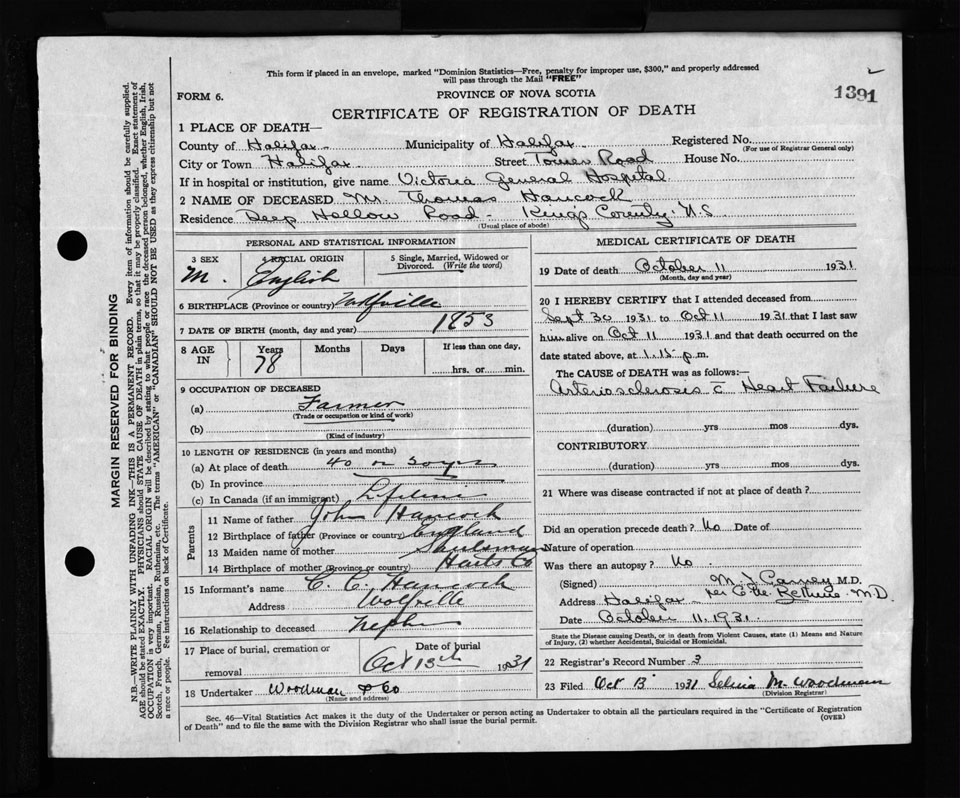 This form if placed in an envelope, marked "Dominion Statistics—Free, penalty for improper use, $300," and properly addressed
will pass through the Mail "FREE"
1391
FORM 6.
PROVINCE OF NOVA SCOTIA
CERTIFICATE OF REGISTRATION OF DEATH
1 PLACE OF DEATH—
County of Halifax Municipality of Halifax Registered No.
(For use of Registrar General only)
City or Town Halifax Street Tower Road House No.
If in hospital or institution, give name Victoria General Hospital
2 NAME OF DECEASED Mr. Thomas Hancock
Residence Deep Hollow Road - Kings County N.S
(Usual place of abode)
PERSONAL AND STATISTICAL INFORMATION
3 SEX M. 4 RACIAL ORIGIN English 5 Single, Married, Widowed or Divorced. (Write the word)
6 BIRTHPLACE (Province or country) Wolfville
7 DATE OF BIRTH (month, day and year) 1853
8 AGE IN Years 78 Months Days If less than one day, hrs. or min.
9 OCCUPATION OF DECEASED
(a) Farmer
(Trade or occupation or kind of work)
(b)
(Kind of industry)
10 LENGTH OF RESIDENCE (in years and months)
(a) At place of death 40 or 50 yrs
(b) In province
(c) In Canada (if an immigrant) Lifetime
Parents
11 Name of father John Hancock
12 Birthplace of father (Province or country) England
13 Maiden name of mother
14 Birthplace of mother (Province or country) Hants Co
15 Informant's name C. C. Hancock
Address Wolfville
16 Relationship to deceased Nephew
17 Place of burial, cremation or removal
Date of burial
Oct 13th 1931
18 Undertaker Woodman & Co
(Name and address)
MEDICAL CERTIFICATE OF DEATH
19 Date of death October 11 1931
(Month, day and year)
20 I HEREBY CERTIFY that I attended deceased from
Sept 30 1931 to Oct 11 1931 that I last saw
him alive on Oct 11 1931 and that death occurred on the
date stated above, at 1.15 p.m.
The CAUSE of DEATH was as follows:—
Arteriosclerosis c̄ Heart Failure
(duration) yrs mos dys.
CONTRIBUTORY
(duration) yrs mos dys.
21 Where was disease contracted if not at place of death?
Did an operation precede death? No Date of
Nature of operation
Was there an autopsy? No
(Signed) M. J. Carney M.D.
Address Halifax per M.D.
Date October 11, 1931.
State the Disease causing Death, or in death from Violent Causes, state (1) Means and Nature
of Injury, (2) whether Accidental, Suicidal or Homicidal.
22 Registrar's Record Number 3
23 Filed Oct 13 1931 Selina M. Woodman
(Division Registrar)
Sec. 46—Vital Statistics Act makes it the duty of the Undertaker or person acting as Undertaker to obtain all the particulars required in the "Certificate of Registration
of Death" and to file the same with the Division Registrar who shall issue the burial permit.
(OVER)
MARGIN RESERVED FOR BINDING
N.B.—WRITE PLAINLY WITH UNFADING INK—THIS IS A PERMANENT RECORD. Every item of information should be carefully supplied.
AGE should be stated EXACTLY. PHYSICIANS should STATE CAUSE OF DEATH in plain terms, so that it may be properly classified. Exact statement of
OCCUPATION is very important. RACIAL ORIGIN will be described by stating to what people or race the deceased person belonged, whether English, Irish,
Scotch, French, German, Russian, Ruthenian, etc. The terms "AMERICAN" or "CANADIAN" SHOULD NOT BE USED as they express citizenship but not
a race or people. See instructions on back of Certificate.